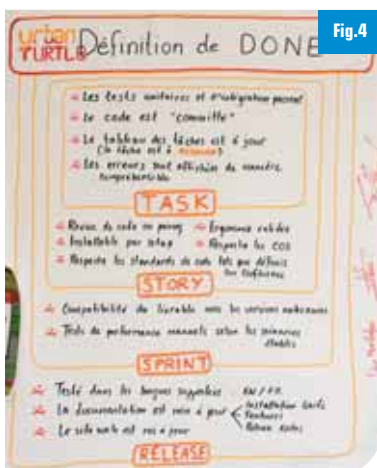 Fig.4
urban
TURTLE Définition de DONE
Les tests unitaires et d'intégration passent
Le code est "committé"
Le tableau des tâches est à jour
(la tâche est à
Les erreurs sont affichées de manière
compréhensible
TASK
Revue de code ou pairing Ergonomie validée
Installable par setup Respecte les COS
Respecte les standards de code tels que définis
sur Confluence
STORY
Compatibilité du livrable avec les versions antérieures
Tests de performance manuels selon les scénarios
établis
SPRINT
Testé dans les langues supportées EN / FR
La documentation est mise à jour Installation Guide
Features
Release Notes
Le site web est mis à jour
RELEASE